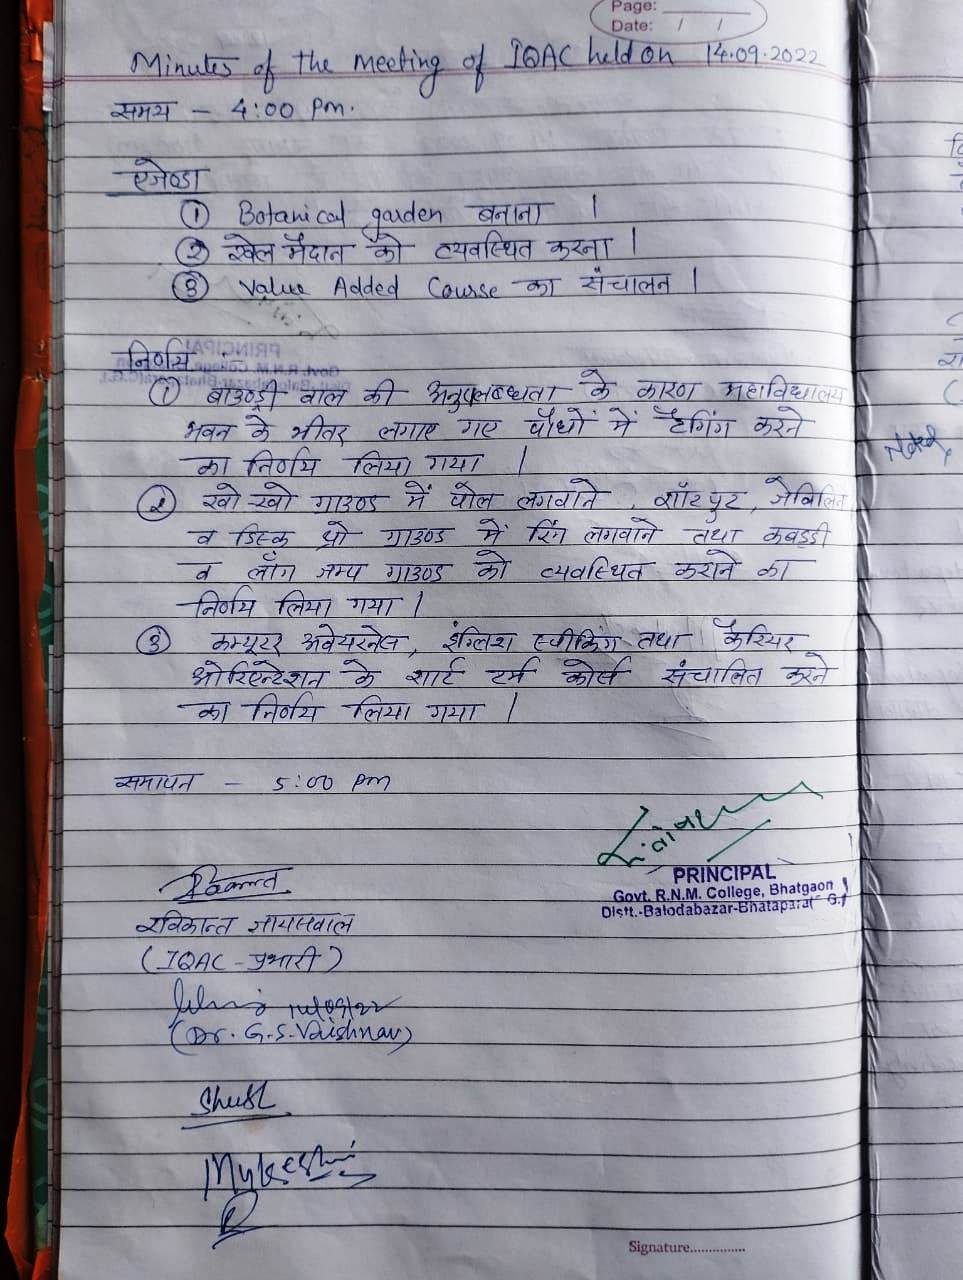 Page:
Date: / /
Minutes of the meeting of IQAC held on 14.09.2022
समय - 4:00 Pm.
एजेण्डा
① Botanical garden बनाना ।
② खेल मैदान को व्यवस्थित करना ।
③ Value Added Course का संचालन ।
निर्णय
① बाउण्ड्री वाल की अनुपलब्धता के कारण महाविद्यालय
भवन के भीतर लगाए गए पौधों में टैगिंग करने
का निर्णय लिया गया ।
② खो-खो ग्राउण्ड में पोल लगवाने, शॉटपुट, जेवेलिन
व डिस्क थ्रो ग्राउण्ड में रिंग लगवाने तथा कबड्डी
व लॉंग जम्प ग्राउण्ड को व्यवस्थित कराने का
निर्णय लिया गया ।
③ कम्प्यूटर अवेयरनेस, इंग्लिश स्पीकिंग तथा कैरियर
ओरिएन्टेशन के शार्ट टर्म कोर्स संचालित करने
का निर्णय लिया गया ।
समापन - 5:00 pm
PRINCIPAL
Govt. R.N.M. College, Bhatgaon
Distt.-Balodabazar-Bhatapara
रविकान्त जायसवाल
(IQAC - प्रभारी)
14/09/22
(Dr. G.S. Vaishnav)
Mukesh
Signature...............
Noted